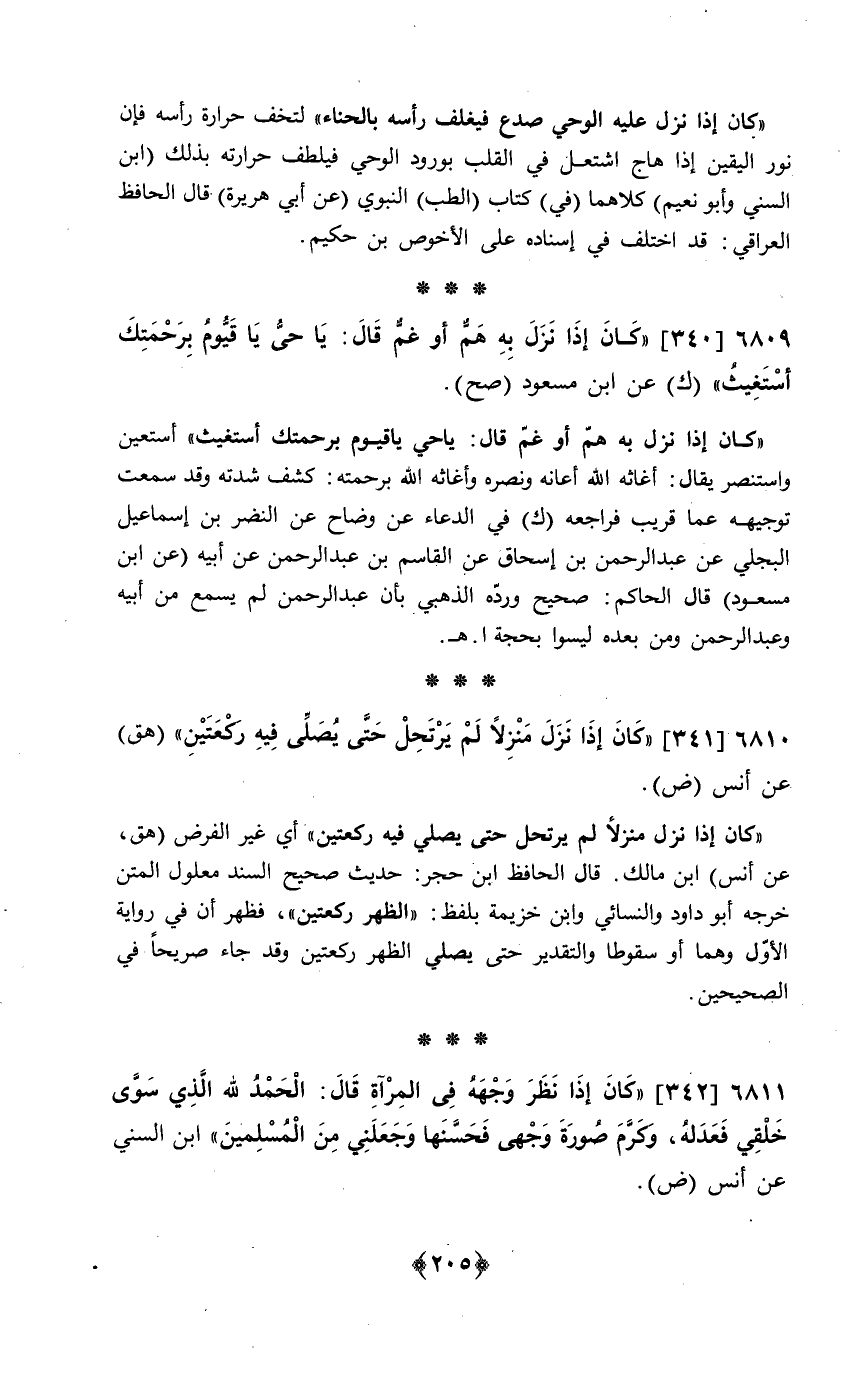 «كان إذا نزل عليه الوحي صدع فيغلف رأسه بالحناء» لتخف حرارة رأسه فإن
نور اليقين إذا هاج اشتعـل في القلب بورود الوحي فيلطف حرارته بذلك (ابن
السني وأبو نعيم) كلاهما (في) كتاب (الطب) النبوي (عن أبي هريرة) قال الحافظ
العراقي: قد اختلف في إسناده على الأخوص بن حكيم.
* * *
٦٨٠٩ [٣٤٠] «كَـانَ إذَا نَزَلَ بِهِ هَمٌّ أو غمٌّ قَالَ: يَا حىُّ يَا قَيُّومُ بِرَحْمَتِكَ
أسْتَغِيثُ» (ك) عن ابن مسعود (صح).
«كـان إذا نزل به همّ أو غمّ قال: ياحي ياقيـوم برحمتك أستغيث» أستعين
واستنصر يقال: أغاثه الله أعانه ونصره وأغاثه الله برحمته: كشف شدته وقد سمعت
توجيهـه عما قريب فراجعه (ك) في الدعاء عن وضاح عن النضر بن إسماعيل
البجلي عن عبدالرحمن بن إسحاق عن القاسم بن عبدالرحمن عن أبيه (عن ابن
مسعـود) قال الحاكم: صحيح وردّه الذهبي بأن عبدالرحمن لم يسمع من أبيه
وعبدالرحمن ومن بعده ليسوا بحجة ا.هـ.
* * *
٦٨١٠ [٣٤١] «كَانَ إذَا نَزَلَ مَنْزِلاً لَمْ يَرْتَحِلْ حَتَّى يُصَلِّى فِيهِ رَكْعَتَيْنِ» (هق)
عن أنس (ض).
«كان إذا نزل منزلاً لم يرتحل حتى يصلي فيه ركعتين» أي غير الفرض (هق،
عن أنس) ابن مالك. قال الحافظ ابن حجر: حديث صحيح السند معلول المتن
خرجه أبو داود والنسائي وابن خزيمة بلفظ: «الظهر ركعتين»، فظهر أن في رواية
الأوّل وهما أو سقوطا والتقدير حتى يصلي الظهر ركعتين وقد جاء صريحاً في
الصحيحين.
* * *
٦٨١١ [٣٤٢] «كَانَ إذَا نَظَرَ وَجْهَهُ فِى المِرْآةِ قَالَ: الْحَمْدُ لله الَّذِي سَوَّى
خَلْقِي فَعَدَلهُ، وَكَرَّمَ صُورَةَ وَجْهى فَحَسَّنَها وَجَعَلَنِي مِنَ الْمُسْلِمينَ» ابن السني
عن أنس (ض).
﴿٢٠٥﴾